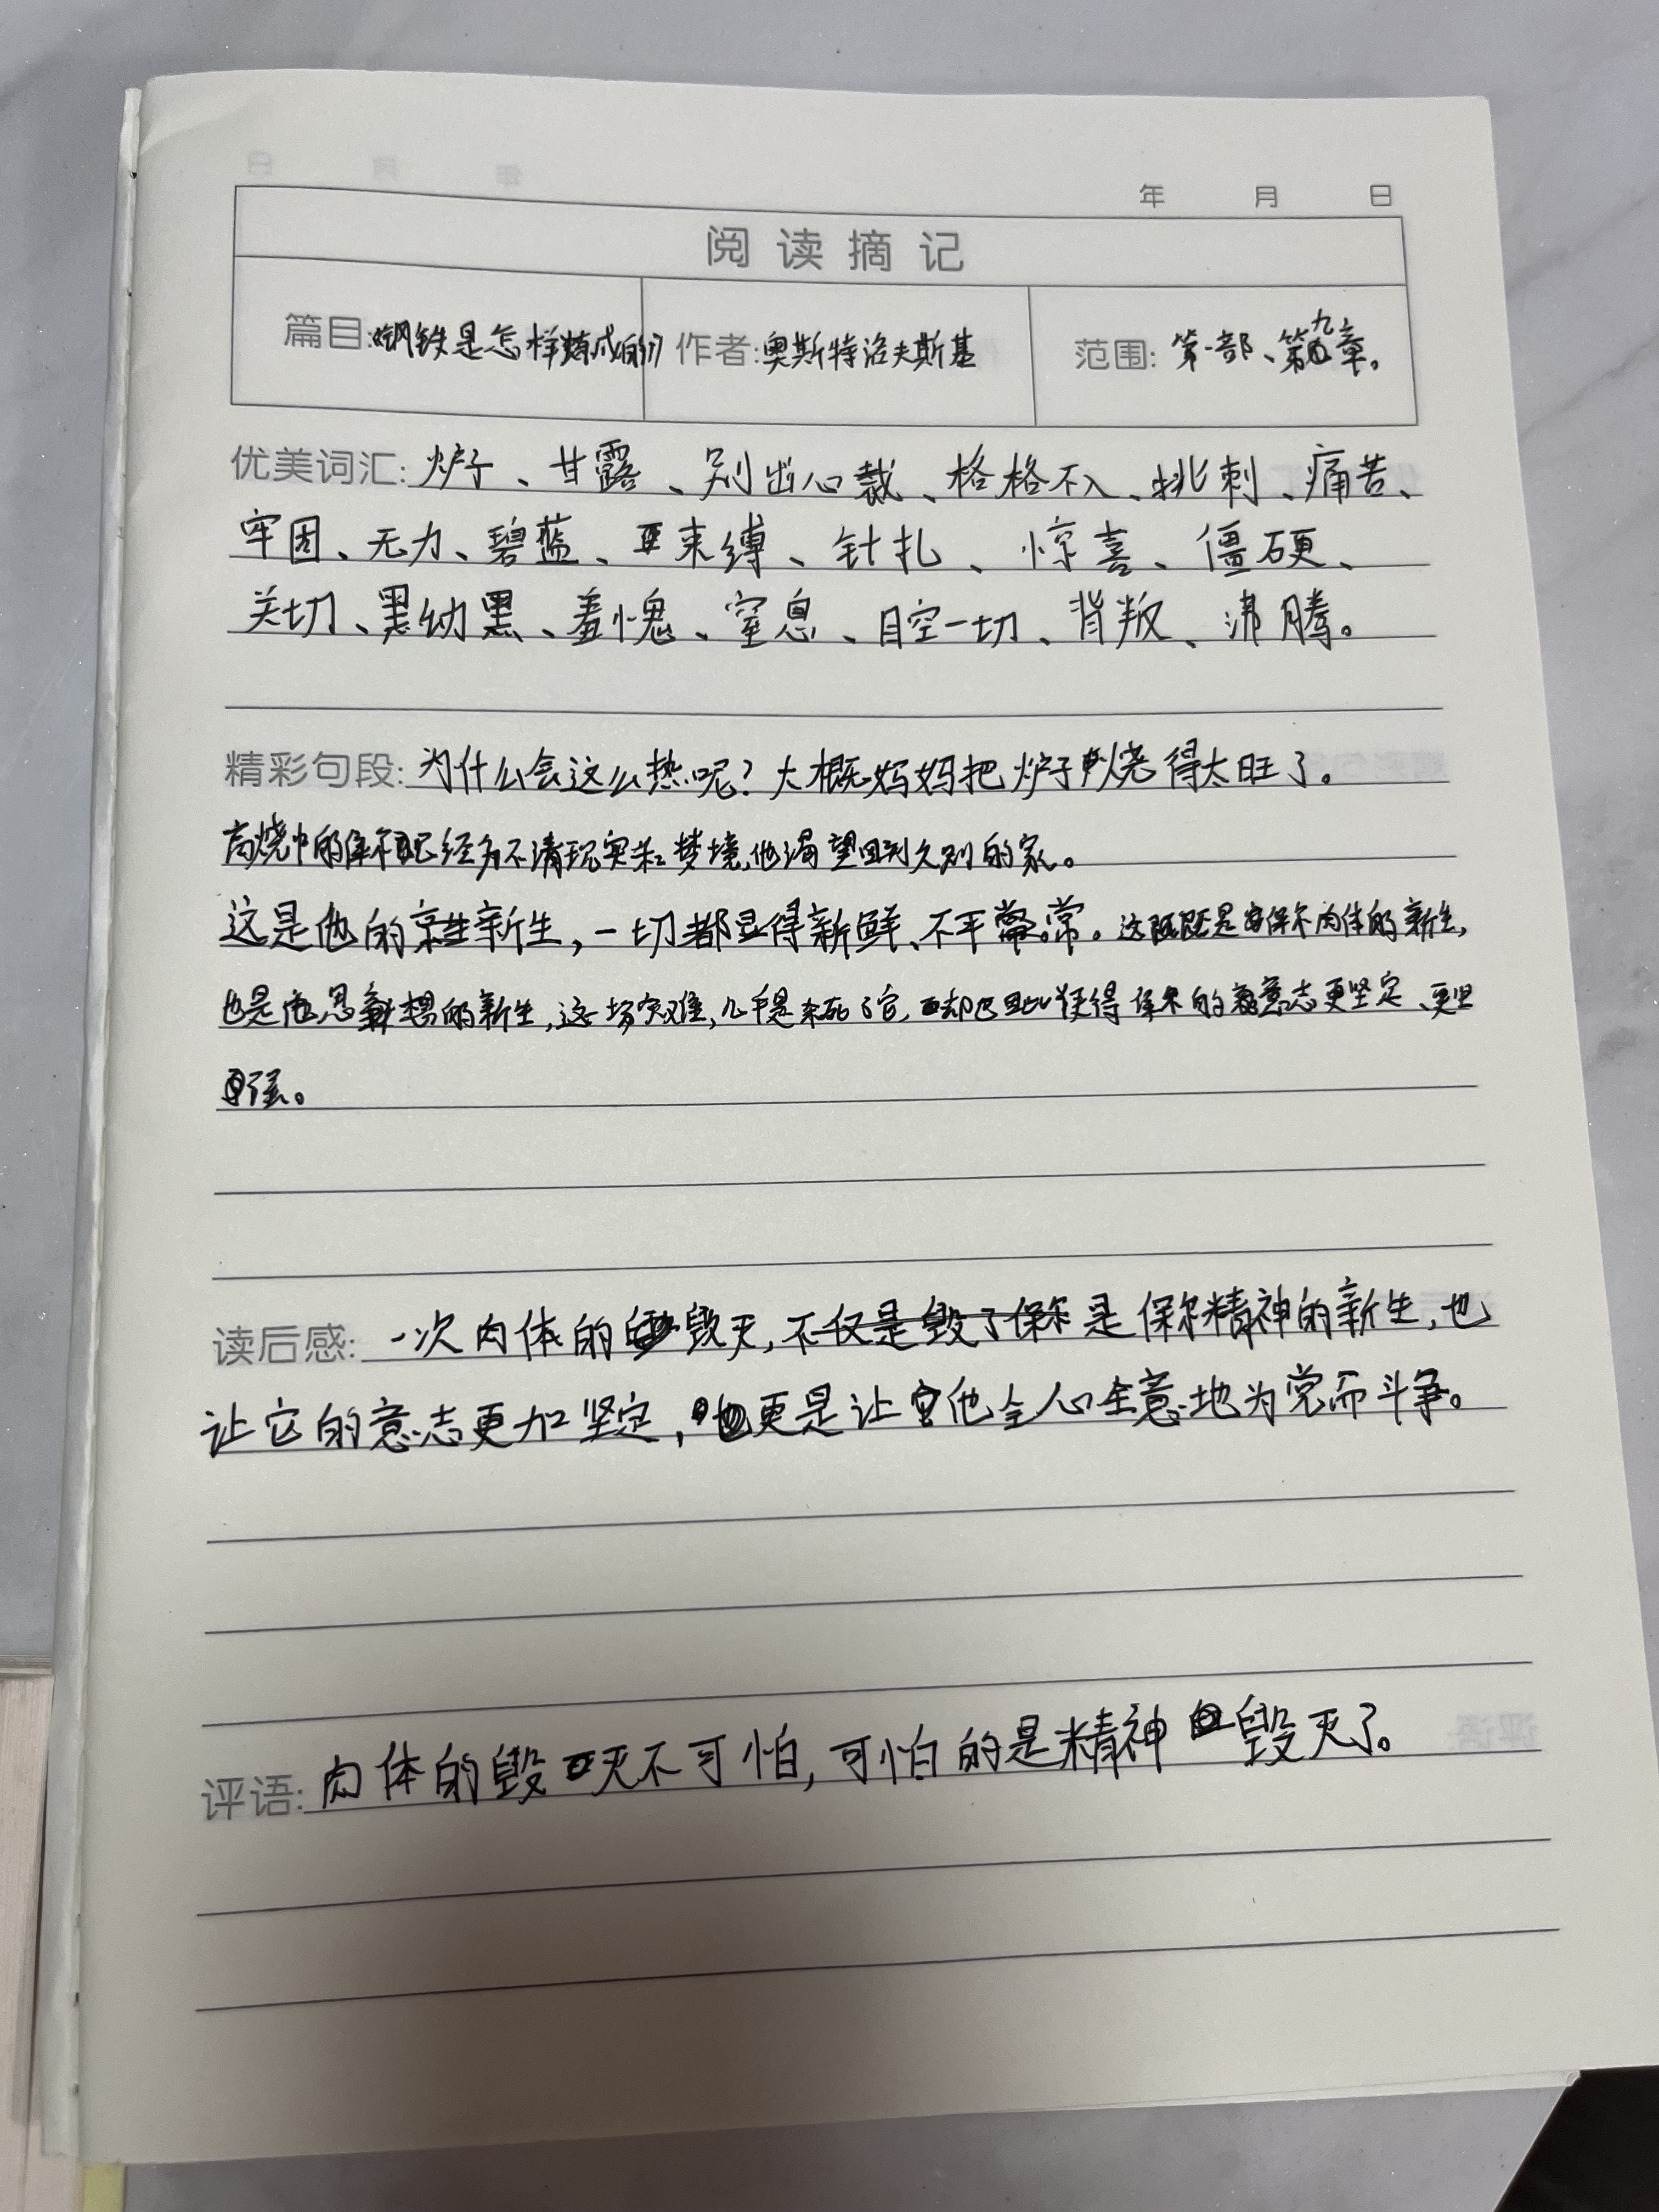 年 月 日
阅读摘记
篇目:《钢铁是怎样炼成的》 作者:奥斯特洛夫斯基 范围: 第一部、第九章。
优美词汇: 炉子、甘露、别出心裁、格格不入、挑刺、痛苦、
牢固、无力、碧蓝、束缚、针扎、惊喜、僵硬、
关切、黑幼黑、羞愧、窒息、目空一切、背叛、沸腾。
精彩句段: 为什么会这么热呢?大概妈妈把炉子烧得太旺了。
高烧中的保尔已经分不清现实和梦境,他渴望回到久别的家。
这是他的新生,一切都显得新鲜、不平常。这既是保尔肉体的新生,
也是他思想的新生,这场灾难,几乎是杀死了它,却也因此使得保尔的意志更坚定、更坚
强。
读后感: 一次肉体的毁灭,是保尔精神的新生,也
让它的意志更加坚定,更是让他全心全意地为党而斗争。
评语: 肉体的毁灭不可怕,可怕的是精神毁灭了。